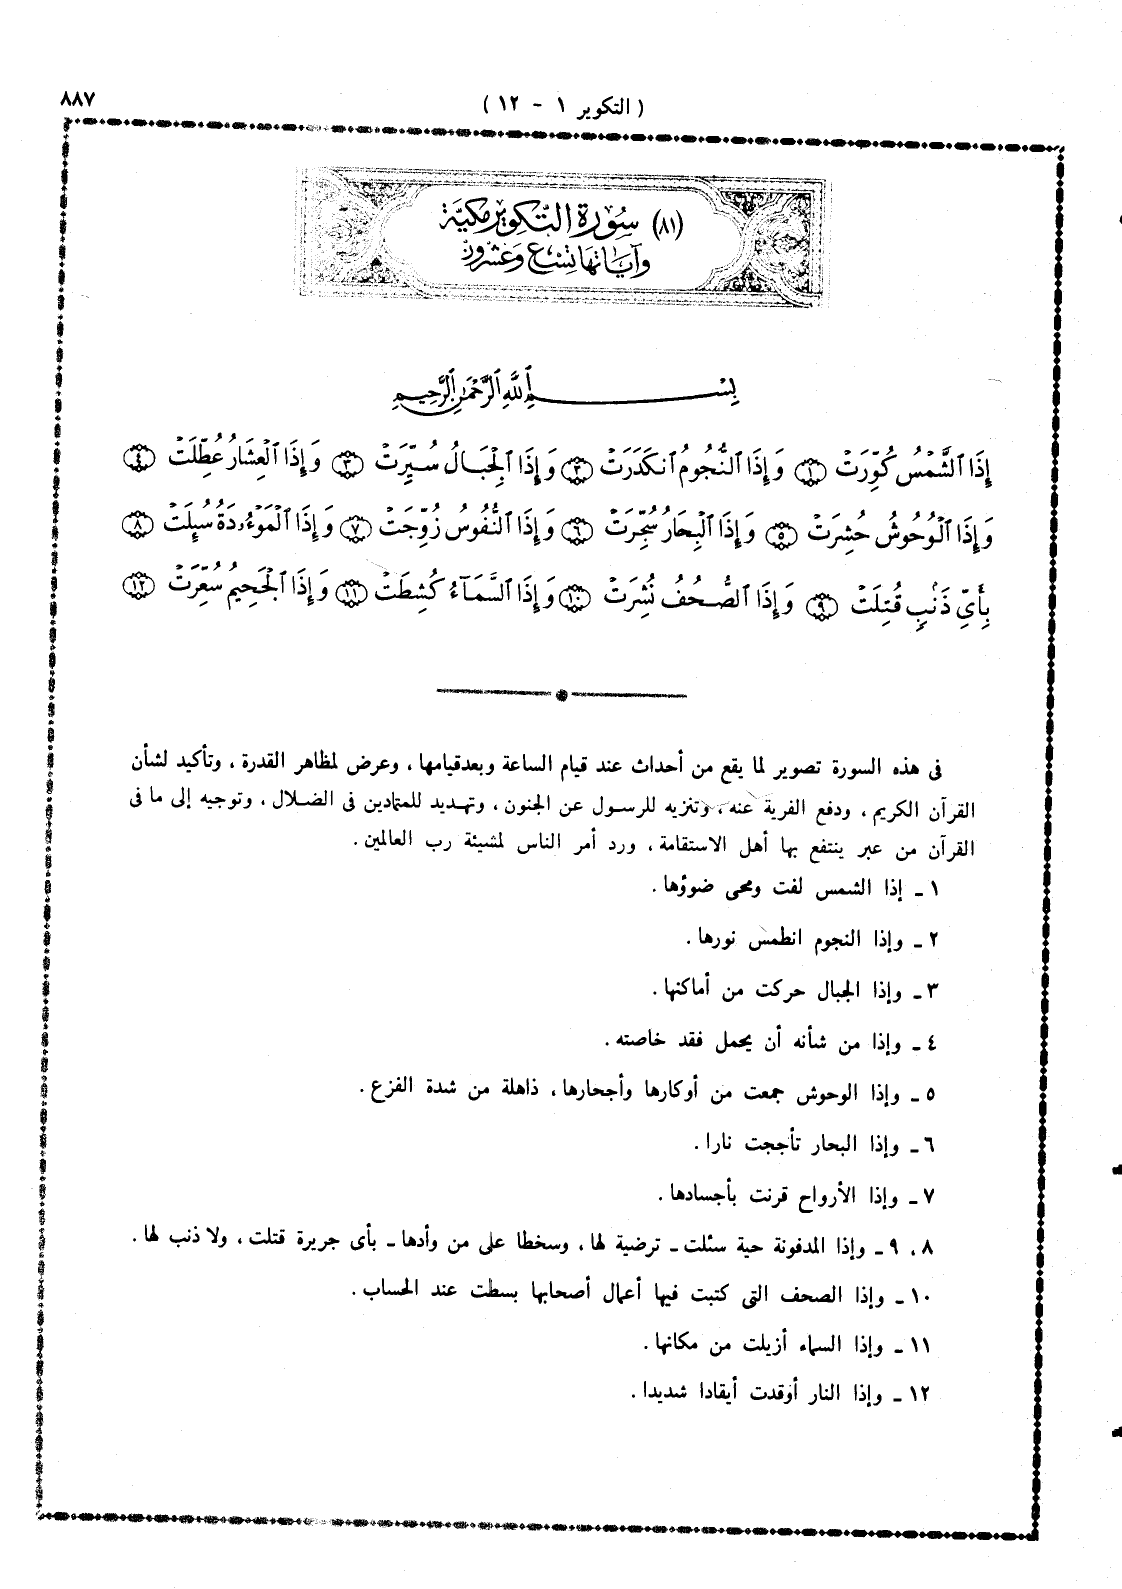 ( التكوير ١ - ١٢ )
٨٨٧
(٨١) سُورَة التَّكويرِ مَكيَّة
وَآيَاتهَا تِسْع وَعشْرُون
بِسْمِ ٱللَّهِ ٱلرَّحْمَٰنِ ٱلرَّحِيمِ
إِذَا ٱلشَّمْسُ كُوِّرَتْ ١ وَإِذَا ٱلنُّجُومُ ٱنكَدَرَتْ ٢ وَإِذَا ٱلْجِبَالُ سُيِّرَتْ ٣ وَإِذَا ٱلْعِشَارُ عُطِّلَتْ ٤
وَإِذَا ٱلْوُحُوشُ حُشِرَتْ ٥ وَإِذَا ٱلْبِحَارُ سُجِّرَتْ ٦ وَإِذَا ٱلنُّفُوسُ زُوِّجَتْ ٧ وَإِذَا ٱلْمَوْءُۥدَةُ سُئِلَتْ ٨
بِأَىِّ ذَنۢبٍ قُتِلَتْ ٩ وَإِذَا ٱلصُّحُفُ نُشِرَتْ ١٠ وَإِذَا ٱلسَّمَآءُ كُشِطَتْ ١١ وَإِذَا ٱلْجَحِيمُ سُعِّرَتْ ١٢
فى هذه السورة تصوير لما يقع من أحداث عند قيام الساعة وبعد قيامها ، وعرض لمظاهر القدرة ، وتأكيد لشأن
القرآن الكريم ، ودفع الفرية عنه ، وتنزيه للرسول عن الجنون ، وتهديد للمتمادين فى الضلال ، وتوجيه إلى ما فى
القرآن من عبر ينتفع بها أهل الاستقامة ، ورد أمر الناس لمشيئة رب العالمين .
١ ـ إذا الشمس لفت ومحى ضوؤها .
٢ ـ وإذا النجوم انطمس نورها .
٣ ـ وإذا الجبال حركت من أماكنها .
٤ ـ وإذا من شأنه أن يحمل فقد خاصته .
٥ ـ وإذا الوحوش جمعت من أوكارها وأجحارها ، ذاهلة من شدة الفزع .
٦ ـ وإذا البحار تأججت نارا .
٧ ـ وإذا الأرواح قرنت بأجسادها .
٨ ، ٩ ـ وإذا المدفونة حية سئلت ـ ترضية لها ، وسخطا على من وأدها ـ بأى جريرة قتلت ، ولا ذنب لها .
١٠ ـ وإذا الصحف التى كتبت فيها أعمال أصحابها بسطت عند الحساب .
١١ ـ وإذا السماء أزيلت من مكانها .
١٢ ـ وإذا النار أوقدت أيقادا شديدا .